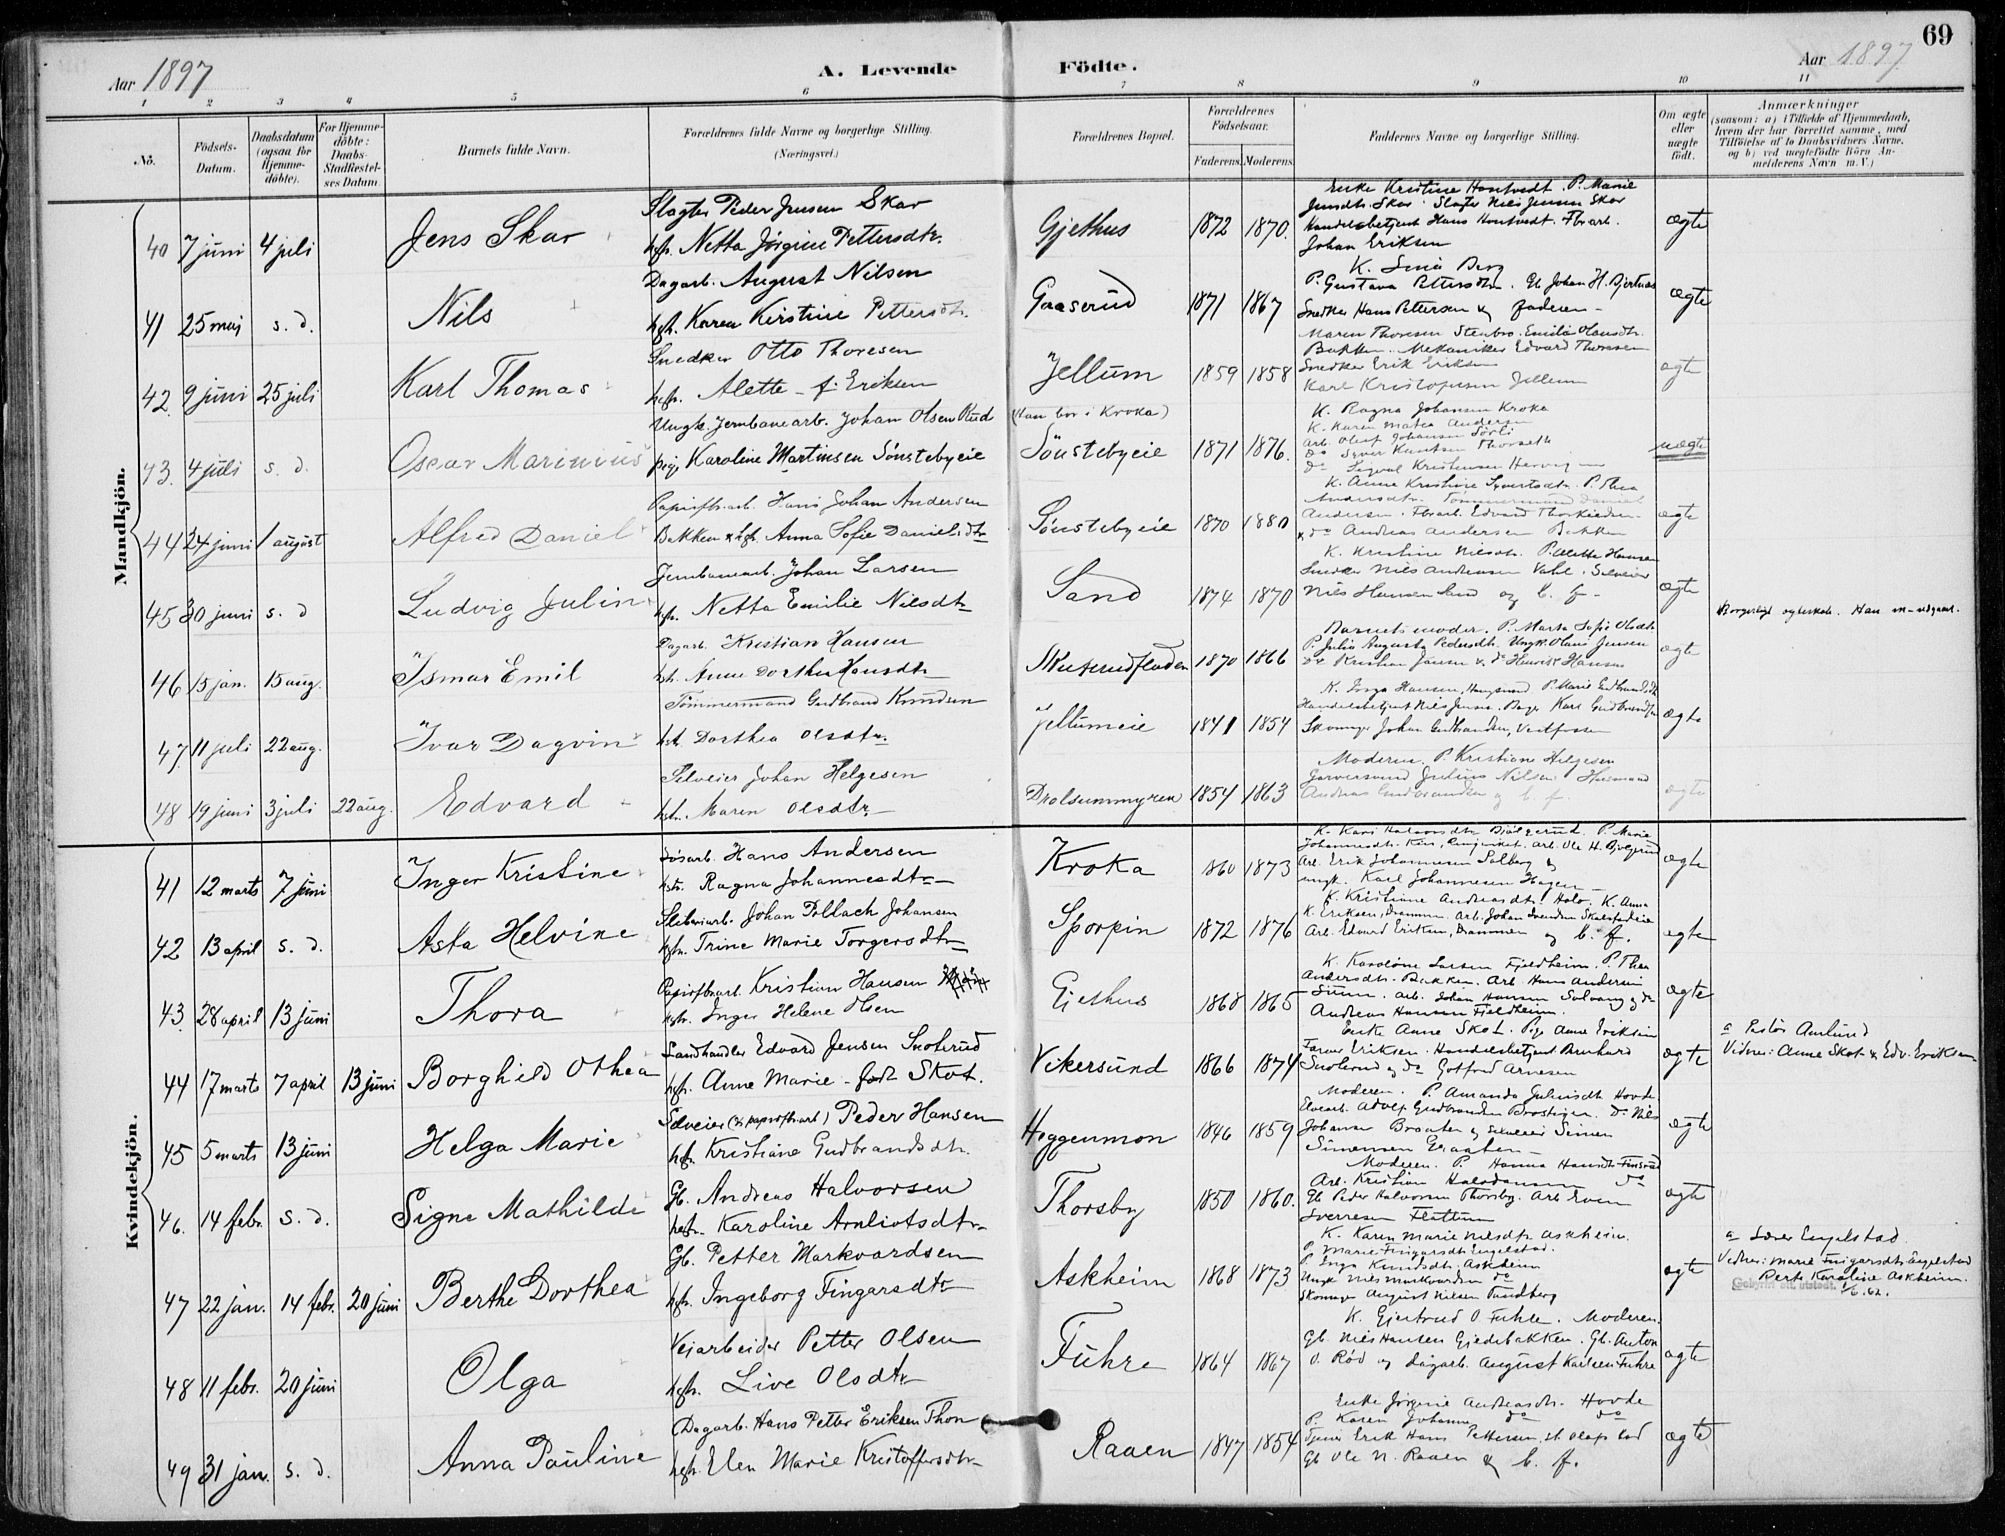 69
Aar 1897
A. Levende Födte.
Aar 1897
1 2 3 4 5 6 7 8 9 10 11
No.
Födsels-Datum.
Daabsdatum (ogsaa for Hjemmedöbte).
For Hjemmedöbte: Daabs-Stadfæstelses Datum
Barnets fulde Navn.
Forældrenes fulde Navne og borgerlige Stilling.
(Næringsvei.)
Forældrenes Bopæl.
Forældrenes Födselsaar.
Faderens. Moderens.
Faddernes Navne og borgerlige Stilling.
Om ægte eller uægte födt.
Anmærkninger
(saasom: a) i Tilfælde af Hjemmedaab, hvem der har forrettet samme, med Tilföielse af to Daabsvidners Navne, og b) ved uægtefödte Börn Anmelderens Navn m. V.)
Mandkjön.
Slagter Peder Jensen Skar
40 7 juni 4 juli Jens Skar hst. Netta Jørgine Pettersdtr. Gjethus 1872 1870. ægte
Enke Kristine Hontvedt. P. Marie
Jensdtr. Skar. Slagter Nils Jensen Skar
Handelsbetjent Hans Hontvedt. Fbrarb.
Johan Eriksen
Dagarb. August Nilsen
41 25 maj s. d. Nils hst. Karen Kirstine Pettersdtr. Gaaserud 1871 1867 ægte
P. Gustava Pettersdtr. Gb. Johan H. Bjertnæs
Snedker Hans Pettersen & faderen
Snedker Otto Thoresen
42. 9 juni 25 juli Karl Thomas hst. Alette f. Eriksen Jellum 1859 1858 ægte
Maren Thoresen Stenbro. Emilie Olausdtr.
Bakken. Mekaniker Edvard Thoresen
Snedker Erik Eriksen
Karl Kristofersen Jellum
Ungk. Jernbanearb. Johan Olsen Rud (Han bor i Kroka)
43. 4 juli s. d. Oscar Marinius pige Karoline Martinsen Sønstebyeie Sønstebyeie 1871 1876. uægte
K. Ragna Johansen Kroka
K. Karen Matea Andersen
Arb. Olaf Johansen Sørli
do Syver Knutsen Thorseth
do Sigval Kristensen
Papirfbarb. Hans Johan Andersen
44 24 juni 1 august Alfred Daniel Bakken & hst. Anna Sofie Danielsdtr. Sønstebyeie 1870 1880 ægte
K. Anne Kristine Syvertsdtr. P. Thea
Andersdtr. Tømmermand Daniel
Andersen. Fbarb. Edvard
& do Andreas Andersen Bakken
Jernbanearb. Johan Larsen
45 30 juni s. d Ludvig Julin hst. Netta Emilie Nilsdtr. Sand 1874 1870 ægte
K. Kristine Nilsdtr. P. Alette Hansen
Snedker Nils Andreasen Vahl. Selveier
Nils Hansen Sand og b. f.
Borgerligt ægteskab. Han
Dagarb. Kristian Hansen
46 15 jan. 15 aug. Ismar Emil hst. Anne Dorthea Hansdtr. Skuterudfladen 1870 1866 ægte
Barnets moder. P. Marta Sofie Olsdtr
P. Julie Augusta Pedersdtr. Ungk. Olaus Jensen
do Kristian Jensen & do Henrik Hansen
Tømmermand Gudbrand Knudsen
47. 11 juli 22 aug. Ivar Dagvin hst. Dorthea Olsdtr. Jellumeie 1841 1854 ægte
K. Inga Hansen, Haugsund P. Marie Gudbrandsdtr
Handelsbetjent Nils Jensen. Bager Karl Gudbrandsen
Skomager Johan Gudbrandsen, Vestfossen
Selveier Johan Helgesen
48 19 juni 3 juli 22 aug. Edvard hst. Maren Olsdtr. Drolsummyren 1854 1863 ægte
Moderen. P. Kristiane Helgesen
Garversvend Julius Nilsen Husmand
Andreas Gudbrandsen og b. f.
Kvindekjön.
Løsarb. Hans Andersen
41 12 marts 7 juni Inger Kristine hst. Ragna Johannesdtr. Kroka 1860 1873 ægte
K. Kari Halvorsdtr. Bjølgerud. P. Marie
Johannesdtr. Ringeriket. Arb. Ole H. Bjølgerud
Arb. Erik Johannesen Solberg og
ungk. Karl Johannesen Hagen
Sliberiarb. Johan Pollach Johansen
42 13 april s. d. Asta Helvine hst. Trine Marie Torgersdtr. Sporpin 1872 1876 ægte
K. Kristiane Andreasdtr. Holo. K. Anna
K. Eriksen, Drammen. Arb. Johan Svendsen
Arb. Edvard Eriksen, Drammen og b. f.
Papirfbarb. Kristian Hansen
43. 28 april 13 juni Thora hst. Inger Helene Olsen Gjethus 1868 1865 ægte
K. Karoline Larsen Fjeldheim. P. Thea
Andersdtr. Bakken. Arb. Hans Andersen
Arb. Johan Hansen Solvang & do
Andreas Hansen Fjeldheim.
Landhandler Edvard Jensen Snolerud
44 17 marts 7 april 13 juni Borghild Othea hst. Anne Marie født Skot. Vikersund 1866 1874 ægte
Enke Anne Skot. Pige Anne Eriksen
Farver Eriksen. Handelsbetjent Bernhard
Snolerud og do Gotfred Arnesen
a Pastor Amlund
Vidner: Anne Skot & Edv. Eriksen
Selveier (& papirfbarb.) Peder Hansen
45 5 marts 13 juni Helga Marie hst. Kristiane Gudbrandsdtr. Heggenmon 1846 1859 ægte
Moderen. P. Amanda Juliusdtr. Hovde
Elvearb. Adolf Gudbrandsen Brostigen. do Nils
Johansen Braaten og selveier Simen
Simensen Graaten
Gb. Andreas Halvorsen
46. 14 febr. s. d. Signe Mathilde hst. Karoline Arnliotsdtr. Thorsby 1850 1860. ægte
Moderen. P. Hanna Hansdtr. Finsrud
Arb. Kristian Halvorsen do
Gb. Peder Halvorsen Thorsby. Arb. Even
Sverresen Flattum
Gb. Petter Markvardsen
47 22 jan. 14 febr. 20 juni Berthe Dorthea hst. Ingeborg Fingarsdtr Askheim 1868 1873 ægte
K. Karen Marie Nilsdtr. Askheim.
P. Marie Fingarsdtr. Engelstad.
P. Inga Knudsdtr. Askheim
Ungk. Nils Markvardsen do
Skomager August Nilsen Sundberg
a Lærer Engelstad.
Vidner: Marie Fingarsdtr. Engelstad
Berte Karoline Askheim.
1/6.62.
Veiarbeider Petter Olsen
48 11 febr. 20 juni Olga hst. Live Olsdtr. Fuhre 1864 1867 ægte
K. Gjertrud O. Fuhre. Moderen.
Gb. Nils Hansen Gjedebakken. Gb. Anton
O. Rød og dagarb. August Karlsen Fuhre
Dagarb. Hans Petter Eriksen Thon
49 31 jan. s. d. Anna Pauline hst. Elen Marie Kristoffersdtr. Raaen 1847 1854 ægte
Enke Jørgine Andreasdtr. Hovde
P. Karen Johanne do do
Tjener Erik Hans Pettersen, St. Olafs bad
Gb. Ole N. Raaen & b. f.